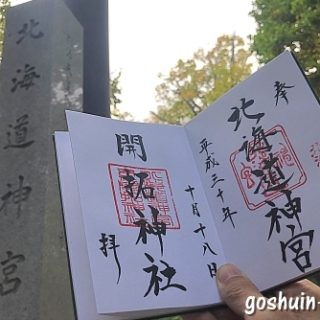 北海道神宮
奉
北海道神宮
平成三十年
十月十八日
開拓神社
拝
goshuin-